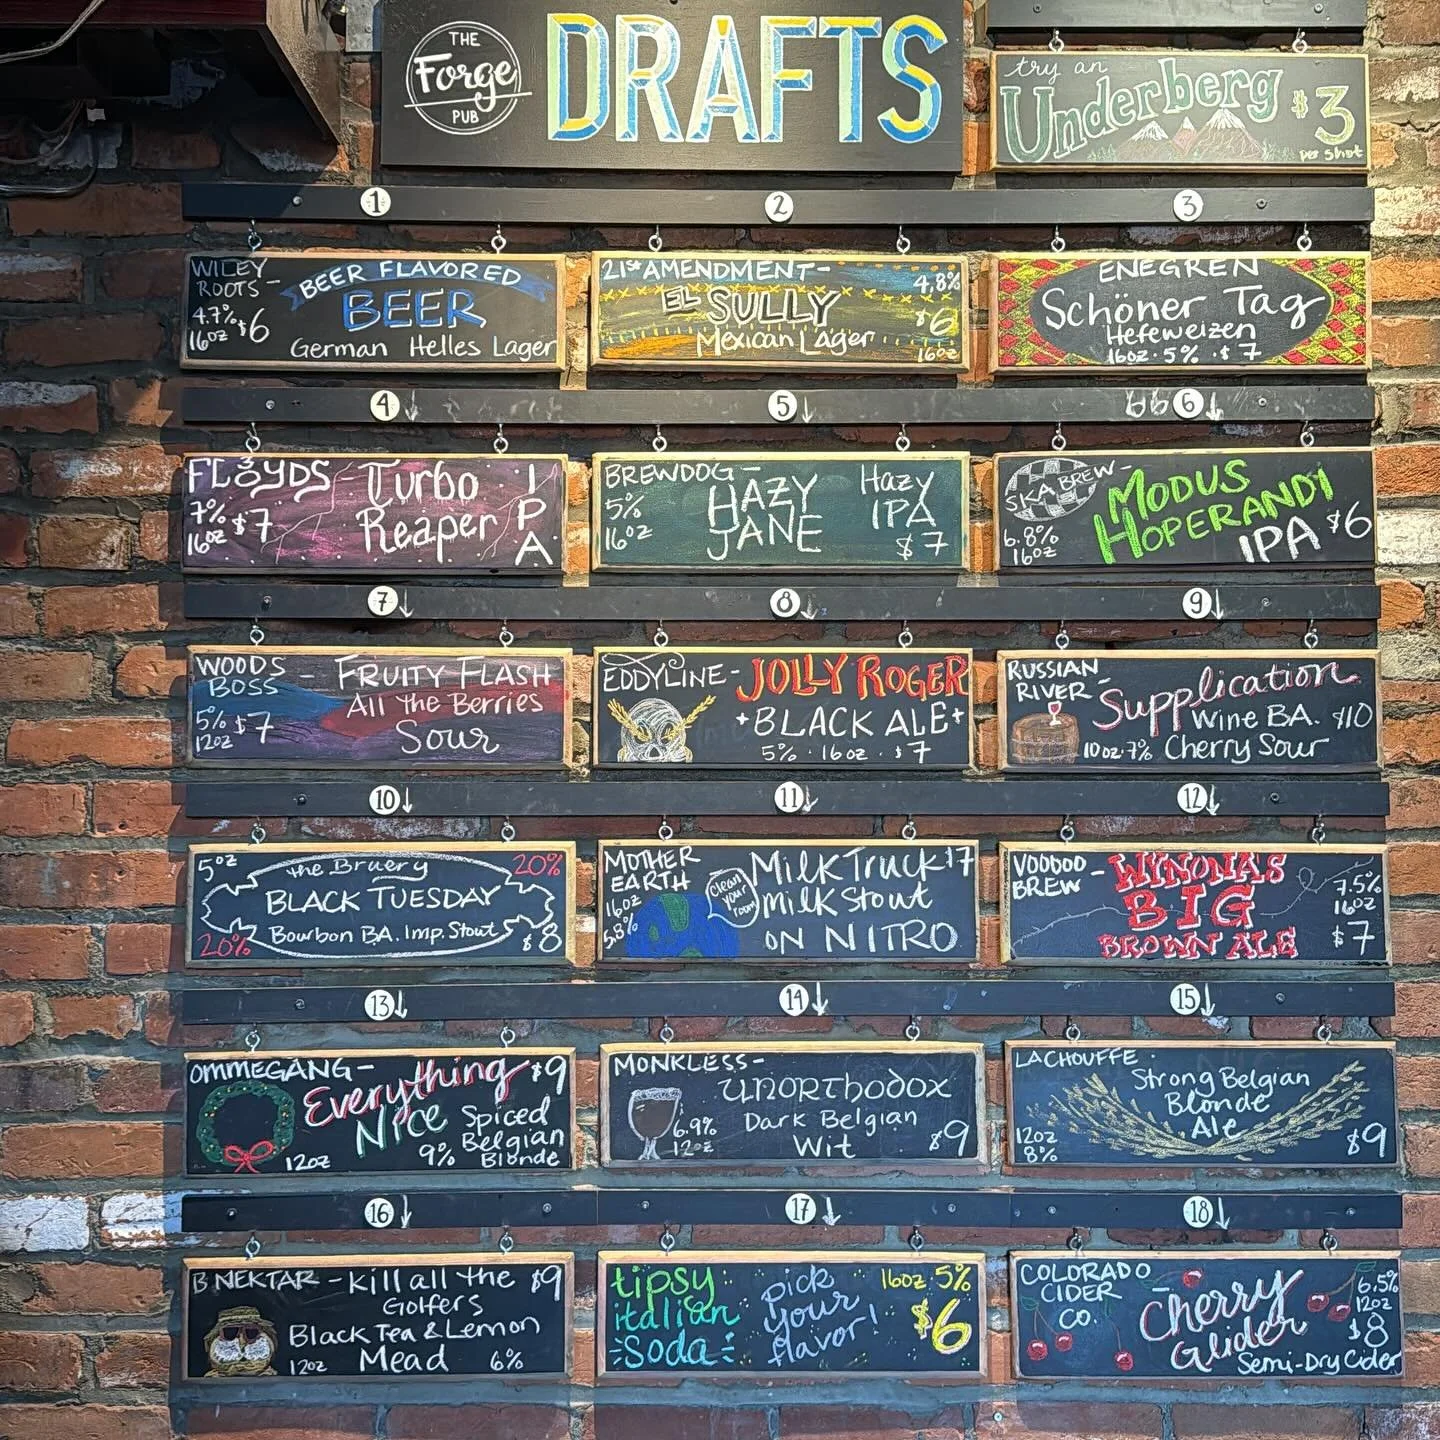 THE
Forge
PUB
DRAFTS
try an
Underberg
$3
per shot
1
2
3
WILEY
ROOTS -
4.7%
16oz
$6
BEER FLAVORED
BEER
German Helles Lager
21st AMENDMENT-
4.8%
EL SULLY
$6
Mexican Lager
16oz
ENEGREN
Schöner Tag
Hefeweizen
16oz · 5% · $7
4
5
6
FLOYDS - Turbo
Reaper
IPA
7%
16oz
$7
BREWDOG -
5%
16oz
HAZY
JANE
Hazy
IPA
$7
SKA BREW -
MODUS
HOPERANDI
IPA $6
6.8%
16oz
7
8
9
WOODS
BOSS -
5%
12oz
$7
FRUITY FLASH
All the Berries
Sour
EDDYLINE - JOLLY ROGER
BLACK ALE
5% · 16oz · $7
RUSSIAN
RIVER -
Supplication
Wine B.A. $10
10oz · 7% Cherry Sour
10
11
12
5oz
the Bruery
20%
BLACK TUESDAY
Bourbon B.A. Imp. Stout
20%
$8
MOTHER
EARTH
16oz
5.8%
Clean
your
room
Milk Truck $7
Milk Stout
ON NITRO
VOODOO
BREW -
WYNONA'S
BIG
BROWN ALE
7.5%
16oz
$7
13
14
15
OMMEGANG -
Everything
Nice
$9
Spiced
Belgian
Blonde
9%
12oz
MONKLESS -
UNORThodox
Dark Belgian
Wit
6.9%
12oz
$9
LACHOUFFE ·
Strong Belgian
Blonde
Ale
12oz
8%
$9
16
17
18
B NEKTAR - kill all the
Golfers
$9
Black Tea & Lemon
Mead
12oz
6%
tipsy
italian
Soda
pick
your
flavor!
16oz 5%
$6
COLORADO
CIDER
CO. -
Cherry
Glider
6.5%
12oz
$8
Semi-Dry Cider